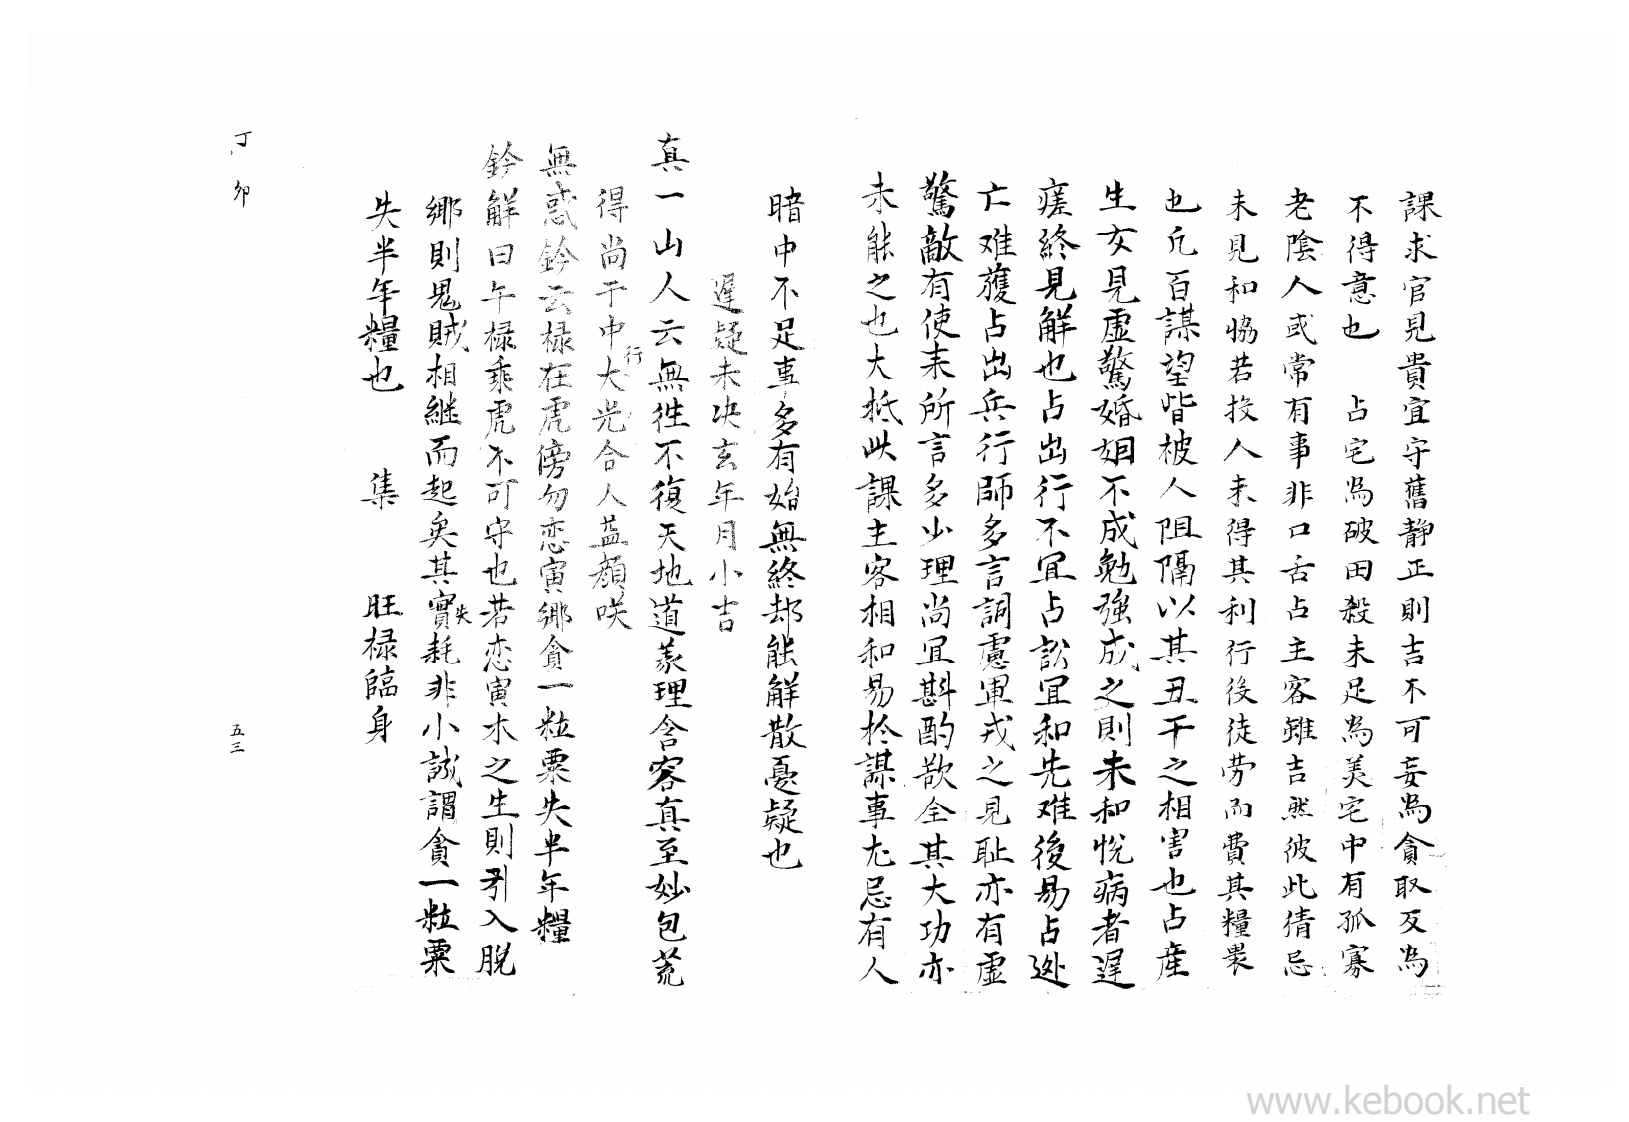 課求官見貴宜守舊静正則吉不可妄為貪取反為
不得意也 占宅為破田殺未足為美宅中有孤寡
老陰人或常有事非口舌占主客雖吉然彼此猜忌
未見和恊若投人未得其利行後徒劳而費其糧裹
也凢百謀望皆被人阻隔以其丑干之相害也占産
生女見虚驚婚姻不成勉強成之則未和悅病者遲
瘥終見解也占出行不宜占訟宜和先难後易占逃
亡难獲占出兵行師多言詞慮軍戎之見耻亦有虚
驚敵有使来所言多少理尚宜斟酌欲全其大功亦
未能之也大抵此課主客相和易於謀事尤忌有人
暗中不足事多有始無終却能解散憂疑也
遲疑未决玄年月小吉
真一山人云無徃不復天地道義理含容真至妙包荒
得尚于中行大光合人盖顔咲
無惑鈐云禄在虎傍勿恋寅鄉貪一粒粟失半年糧
鈐解曰乍禄乘虎不可守也若恋寅木之生則引入脫
鄉則鬼賊相継而起矣其實失耗非小誠謂貪一粒粟
失半年糧也 集 旺禄臨身
丁卯
五三
www.kebook.net